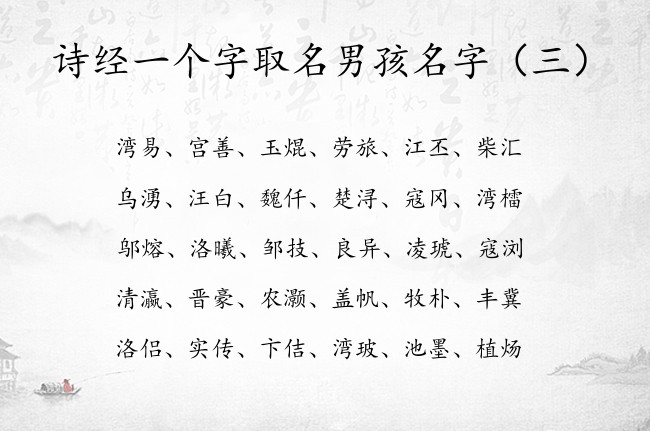 诗经一个字取名男孩名字（三）
湾易、宫善、玉焜、劳旅、江丕、柴汇
乌湧、汪白、魏仟、楚浔、寇冈、湾檑
邬熔、洛曦、邹技、良异、凌琥、寇浏
清瀛、晋豪、农灏、盖帆、牧朴、丰冀
洛侣、实传、卞佶、湾玻、池墨、植炀